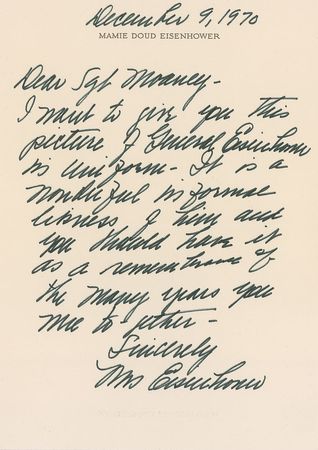 December 9, 1970
MAMIE DOUD EISENHOWER
Dear Sgt Moaney-
I want to give you this
picture of General Eisenhower
in uniform - It is a
wonderful informal
likness of him and
you should have it
as a remembrance of
the many years you
were to-gether -
Sincerely
Mrs Eisenhower